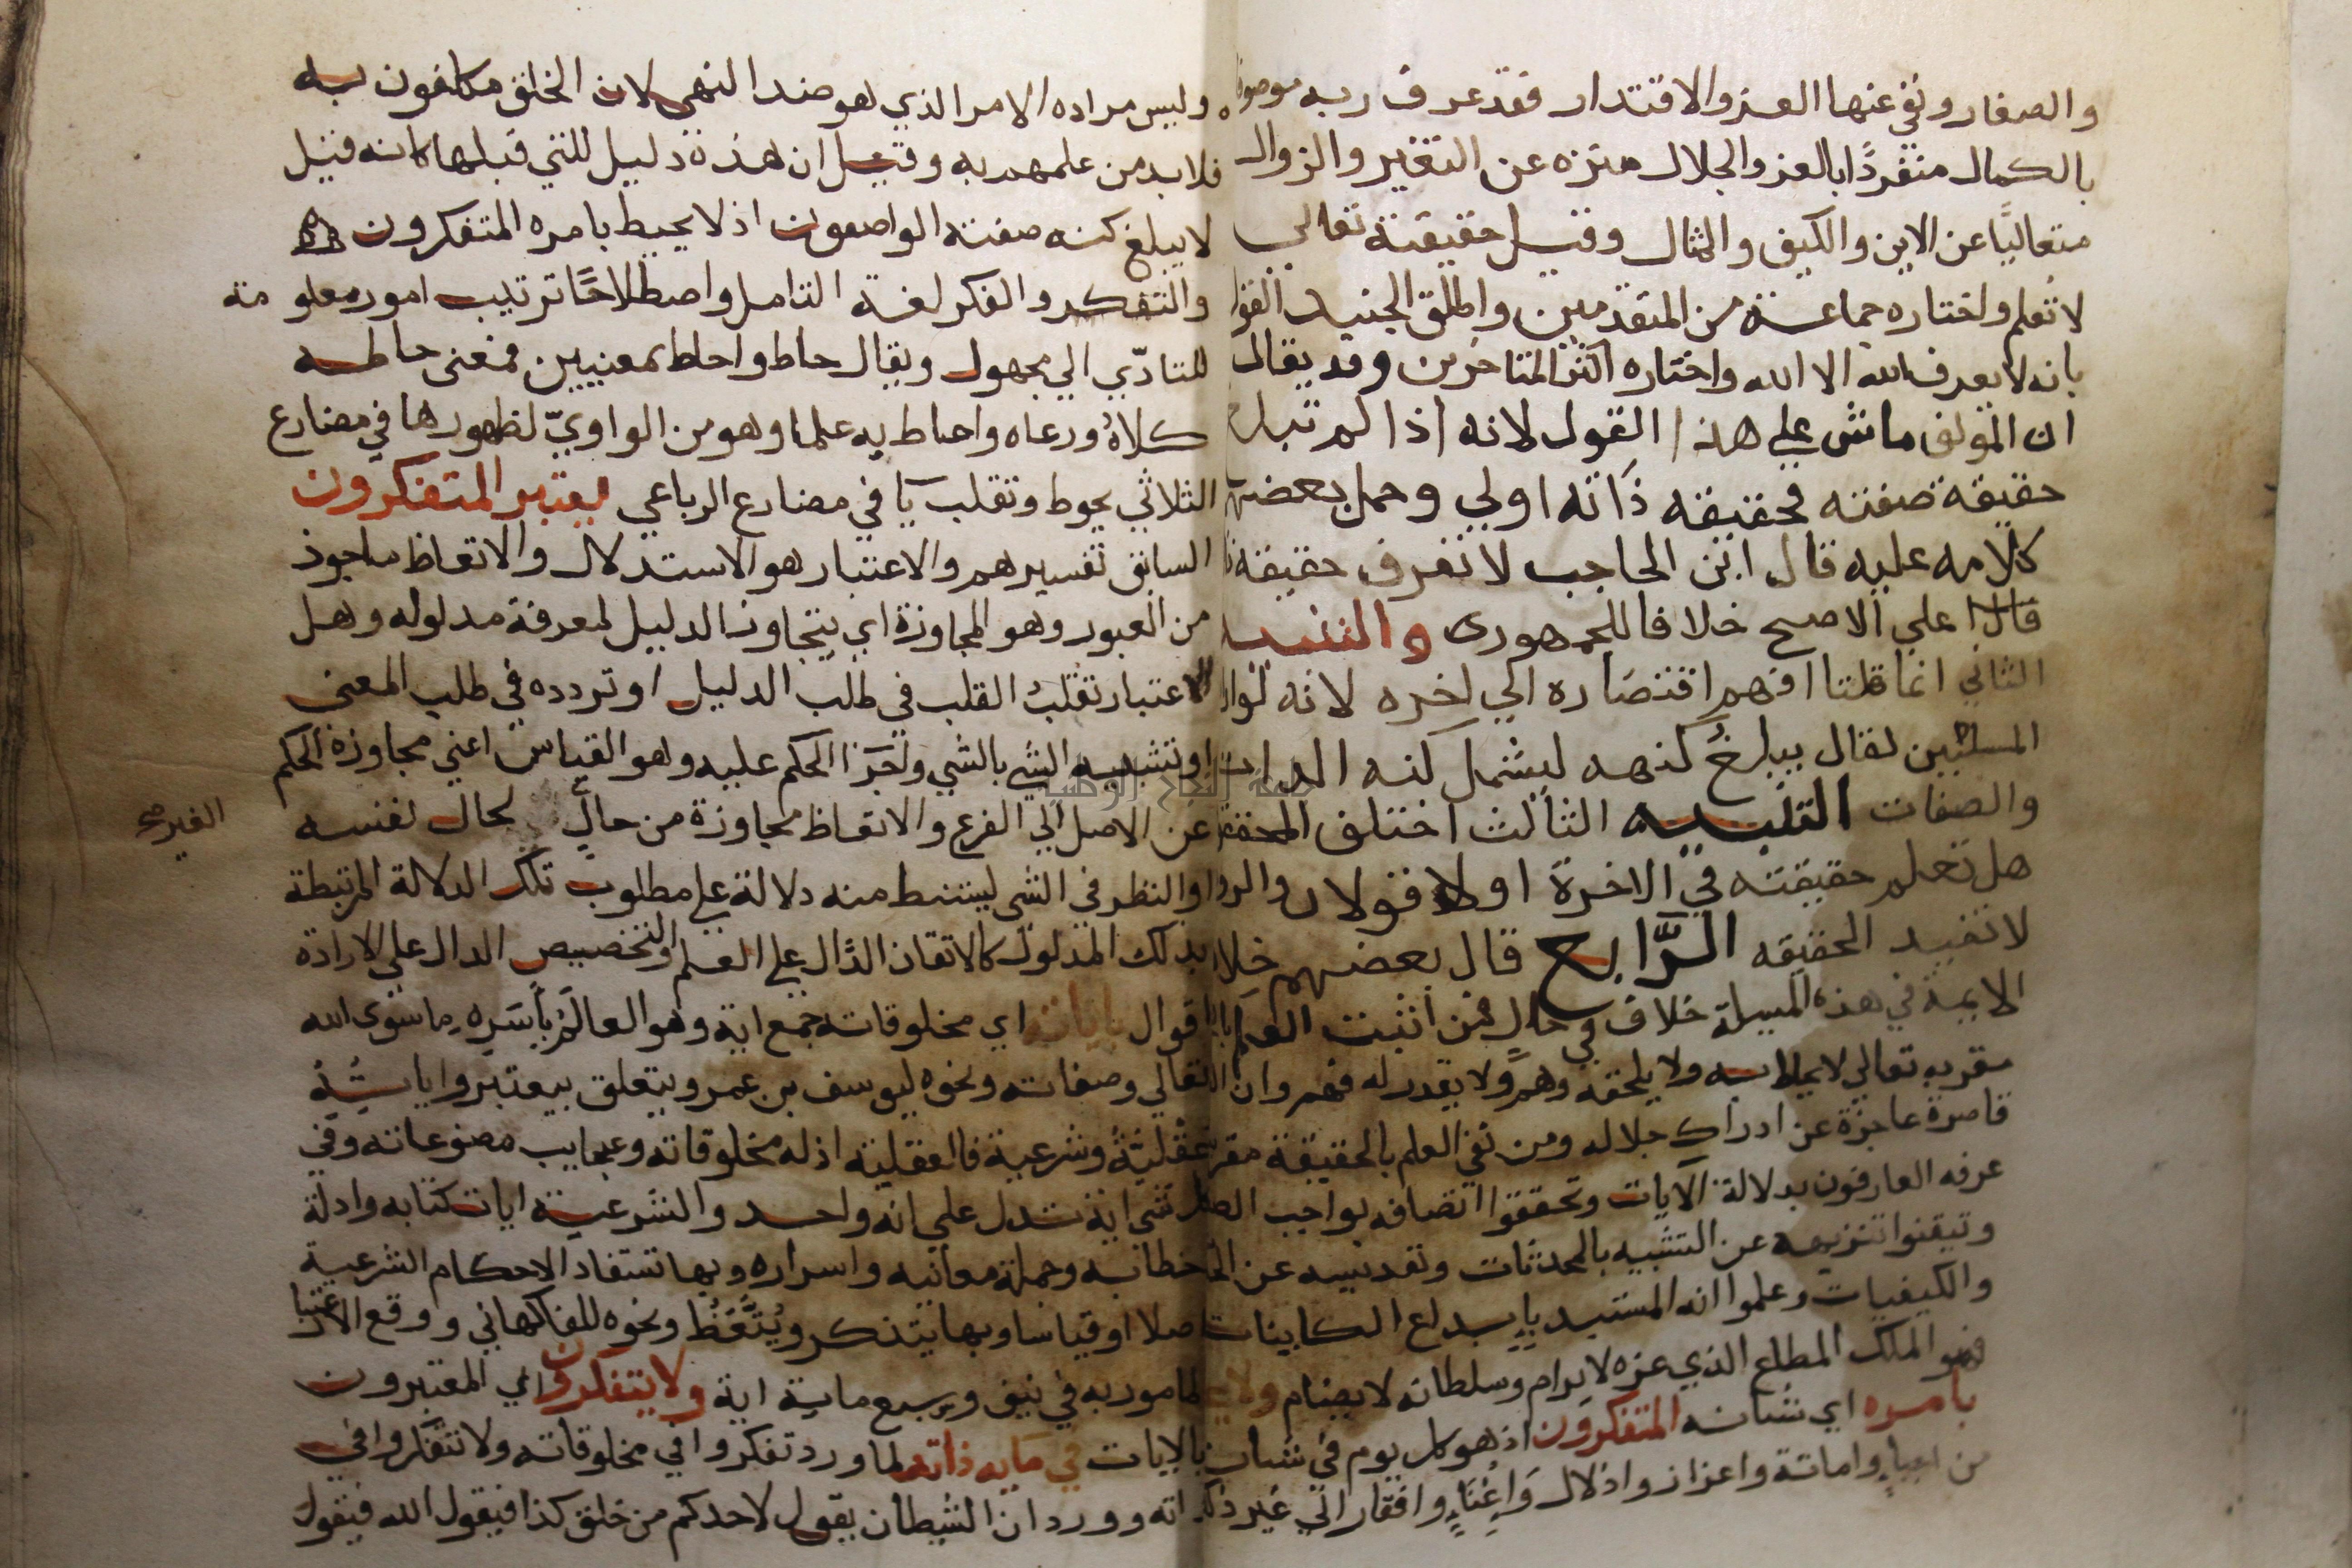 والصغار ونفي عنها العز والاقتدار فقد عرف ربه موصوفا
بالكمال منفردًا بالعز والجلال منزه عن التغير والزوال
متعاليًا عن الاين والكيف والمثال وقيل حقيقته تعالى
لا تُعلم واختاره جماعة من المتقدمين واطلق الجنيد القول
بانه لا يعرف الله الا الله واختاره اكثر المتاخرين وقد يقال
ان المؤلف ماش علي هذا القول لانه اذا لم تبلغ
حقيقة صفته فحقيقه ذاته اولي وحمل بعضهم
كلامه عليه قال ابن الحاجب لا تعرف حقيقة
علي الاصح خلافا للجمهوري والتنبيه
الثاني انما قلنا افهم اقتصاره الي اخره لانه لو اراد
لقال يبلغُ كنهه ليشمل كنه الذات
والصفات التنبيه الثالث اختلف المحققون
هل تعلم حقيقته في الاخرة اولا قولان
لا تفيد الحقيقه الرَّابع قال بعضهم
الايمة في هذه المسيلة خلاف في حال فمن اثبت العلم
مقر به تعالي ولا يلحقه وهمٌ ولا يقدر له فهم وان
قاصرة عاجزة عن ادراك جلاله ومن نفي العلم بالحقيقة مقر
عرفه العارفون بدلالة الآيات وتحققوا اتصافه بواجب
وتيقنوا تنزيهه عن التشبيه بالمحدثات وتقديسه عن
والكيفيات وعلموا انه المستبد بابداع الكاينات
فهو الملك المطاع الذي عزه لا يرام وسلطانه لا يضام
بامره اي شانه المتفكرون اذ هو كل يوم في شان
واماتة واعزاز واذلال وَاغناءٍ وافقار الي غير ذلك
وليس مراده الامر الذي هو ضد النهي لان الخلق مكلفون به
فلا بد من علمهم به وقيل ان هذه دليل للتي قبلها كانه قيل
لا يبلغ كنه صفته الواصفون اذ لا يحيط بامره المتفكرون
والتفكر والفكر لغة التامل واصطلاحًا ترتيب امور معلو مة
للتادّي الي مجهول ويقال حاط واحاط بمعنيين فمعنى حاطه
كلاهُ ورعاه واحاط به علما وهو من الواويّ لظهورها في مضارع
الثلاثي يحوط وتقلب يا في مضارع الرباعي يعتبر المتفكرون
السابق تفسيرهم والاعتبار هو الاستدلال والاتعاظ ماخوذ
من العبور وهو المجاوزة اي يتجاوز الدليل لمعرفة مدلوله وهل
الاعتبار تقلب القلب في طلب الدليل او تردده في طلب المعنى
او تشبيه الشي بالشي الحكم عليه وهو القياس اعني مجاوزة الحكم
عن الاصل الي الفرع والاتعاظ مجاوزة من حال لحال نفسه
الغير صح
او النظر في الشي ليستنبط منه دلالة علي مطلوب تلك الدلالة المرتبطة
بذلك المدلول كالاتقان الدَّال علي العلم والتخصيص الدال علي الارادة
اقوال باياته اي مخلوقاته جمع اية وهو العالَمُ باسَره ما سوي الله
تعالي وصفاته ونحوه ليوسف بن عمر ويتعلق بيعتبر واياته
عقليَّةٌ وشرعية فالعقلية اذله مخلوقاته وعجايب مصنوعاته وفي
شي اية تدل علي انه واحد والشرعية ايات كتابه وادلة
خطابه وجملة معانيه واسراره وبها تستفاد الاحكام الشرعية
اصلا او قياسا وبها يتذكر ويُتَّعَظُ ونحوه للفاكهاني ووقع الاعتبار
المامور به في نيف وربع ماية اية ولا يتفكرون اي المعتبرون
بالايات في مايه ذاته لما ورد تفكروا في مخلوقاته ولا تتفكروا في
ذاته وورد ان الشيطان يقول لاحدكم من خلق كذا فيقول الله فيقول